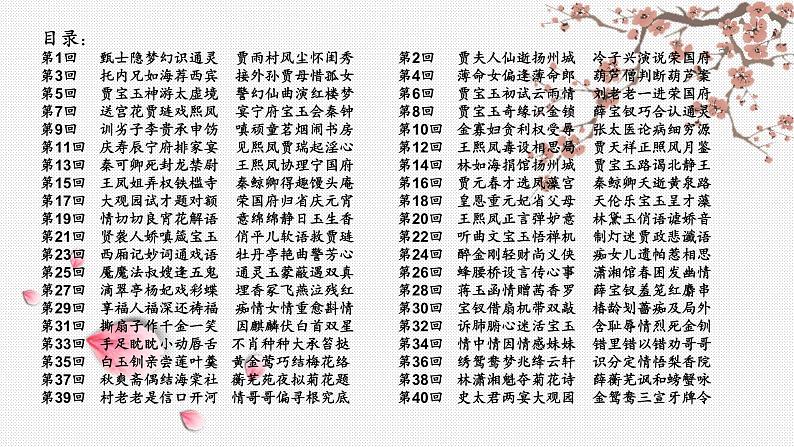 目录：
第1回 甄士隐梦幻识通灵 贾雨村风尘怀闺秀 第2回 贾夫人仙逝扬州城 冷子兴演说荣国府
第3回 托内兄如海荐西宾 接外孙贾母惜孤女 第4回 薄命女偏逢薄命郎 葫芦僧判断葫芦案
第5回 贾宝玉神游太虚境 警幻仙曲演红楼梦 第6回 贾宝玉初试云雨情 刘老老一进荣国府
第7回 送宫花贾琏戏熙凤 宴宁府宝玉会秦钟 第8回 贾宝玉奇缘识金锁 薛宝钗巧合认通灵
第9回 训劣子李贵承申饬 嗔顽童茗烟闹书房 第10回 金寡妇贪利权受辱 张太医论病细穷源
第11回 庆寿辰宁府排家宴 见熙凤贾瑞起淫心 第12回 王熙凤毒设相思局 贾天祥正照风月鉴
第13回 秦可卿死封龙禁尉 王熙凤协理宁国府 第14回 林如海捐馆扬州城 贾宝玉路谒北静王
第15回 王凤姐弄权铁槛寺 秦鲸卿得趣馒头庵 第16回 贾元春才选凤藻宫 秦鲸卿夭逝黄泉路
第17回 大观园试才题对额 荣国府归省庆元宵 第18回 皇恩重元妃省父母 天伦乐宝玉呈才藻
第19回 情切切良宵花解语 意绵绵静日玉生香 第20回 王熙凤正言弹妒意 林黛玉俏语谑娇音
第21回 贤袭人娇嗔箴宝玉 俏平儿软语救贾琏 第22回 听曲文宝玉悟禅机 制灯迷贾政悲谶语
第23回 西厢记妙词通戏语 牡丹亭艳曲警芳心 第24回 醉金刚轻财尚义侠 痴女儿遗帕惹相思
第25回 魇魔法叔嫂逢五鬼 通灵玉蒙蔽遇双真 第26回 蜂腰桥设言传心事 潇湘馆春困发幽情
第27回 滴翠亭杨妃戏彩蝶 埋香冢飞燕泣残红 第28回 蒋玉函情赠茜香罗 薛宝钗羞笼红麝串
第29回 享福人福深还祷福 痴情女情重愈斟情 第30回 宝钗借扇机带双敲 椿龄划蔷痴及局外
第31回 撕扇子作千金一笑 因麒麟伏白首双星 第32回 诉肺腑心迷活宝玉 含耻辱情烈死金钏
第33回 手足眈眈小动唇舌 不肖种种大承笞挞 第34回 情中情因情感妹妹 错里错以错劝哥哥
第35回 白玉钏亲尝莲叶羹 黄金莺巧结梅花络 第36回 绣鸳鸯梦兆绛云轩 识分定情悟梨香院
第37回 秋爽斋偶结海棠社 蘅芜苑夜拟菊花题 第38回 林潇湘魁夺菊花诗 薛蘅芜讽和螃蟹咏
第39回 村老老是信口开河 情哥哥偏寻根究底 第40回 史太君两宴大观园 金鸳鸯三宣牙牌令